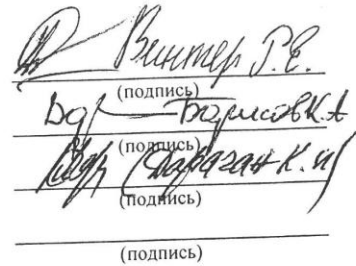 Винтер Р.Е.
(подпись)
Борисов К.А
(подпись)
(Дараган К.И)
(подпись)
(подпись)